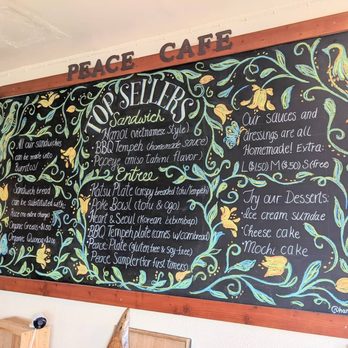 PEACE CAFE
All our sandwiches
can be made into
Burritos!
Sandwich bread
can be substituted with:
Organic Greens
Organic Quinoa
TOP SELLERS
Sandwich
(Vietnamese Style)
BBQ Tempeh
Popeye (miso tahini flavor)
Entree
Katsu Plate (crispy breaded tofu/tempeh)
Bowl (tofu & ogo)
Heart & Seoul (Korean bibimbap)
BBQ Tempeh plate (comes w/cornbread)
Peace Plate (gluten free & soy-free)
Peace Sampler for first timers
Our sauces and
dressings are all
Homemade! Extra:
Try our Desserts:
ice cream sundae
Cheese cake
Mochi cake